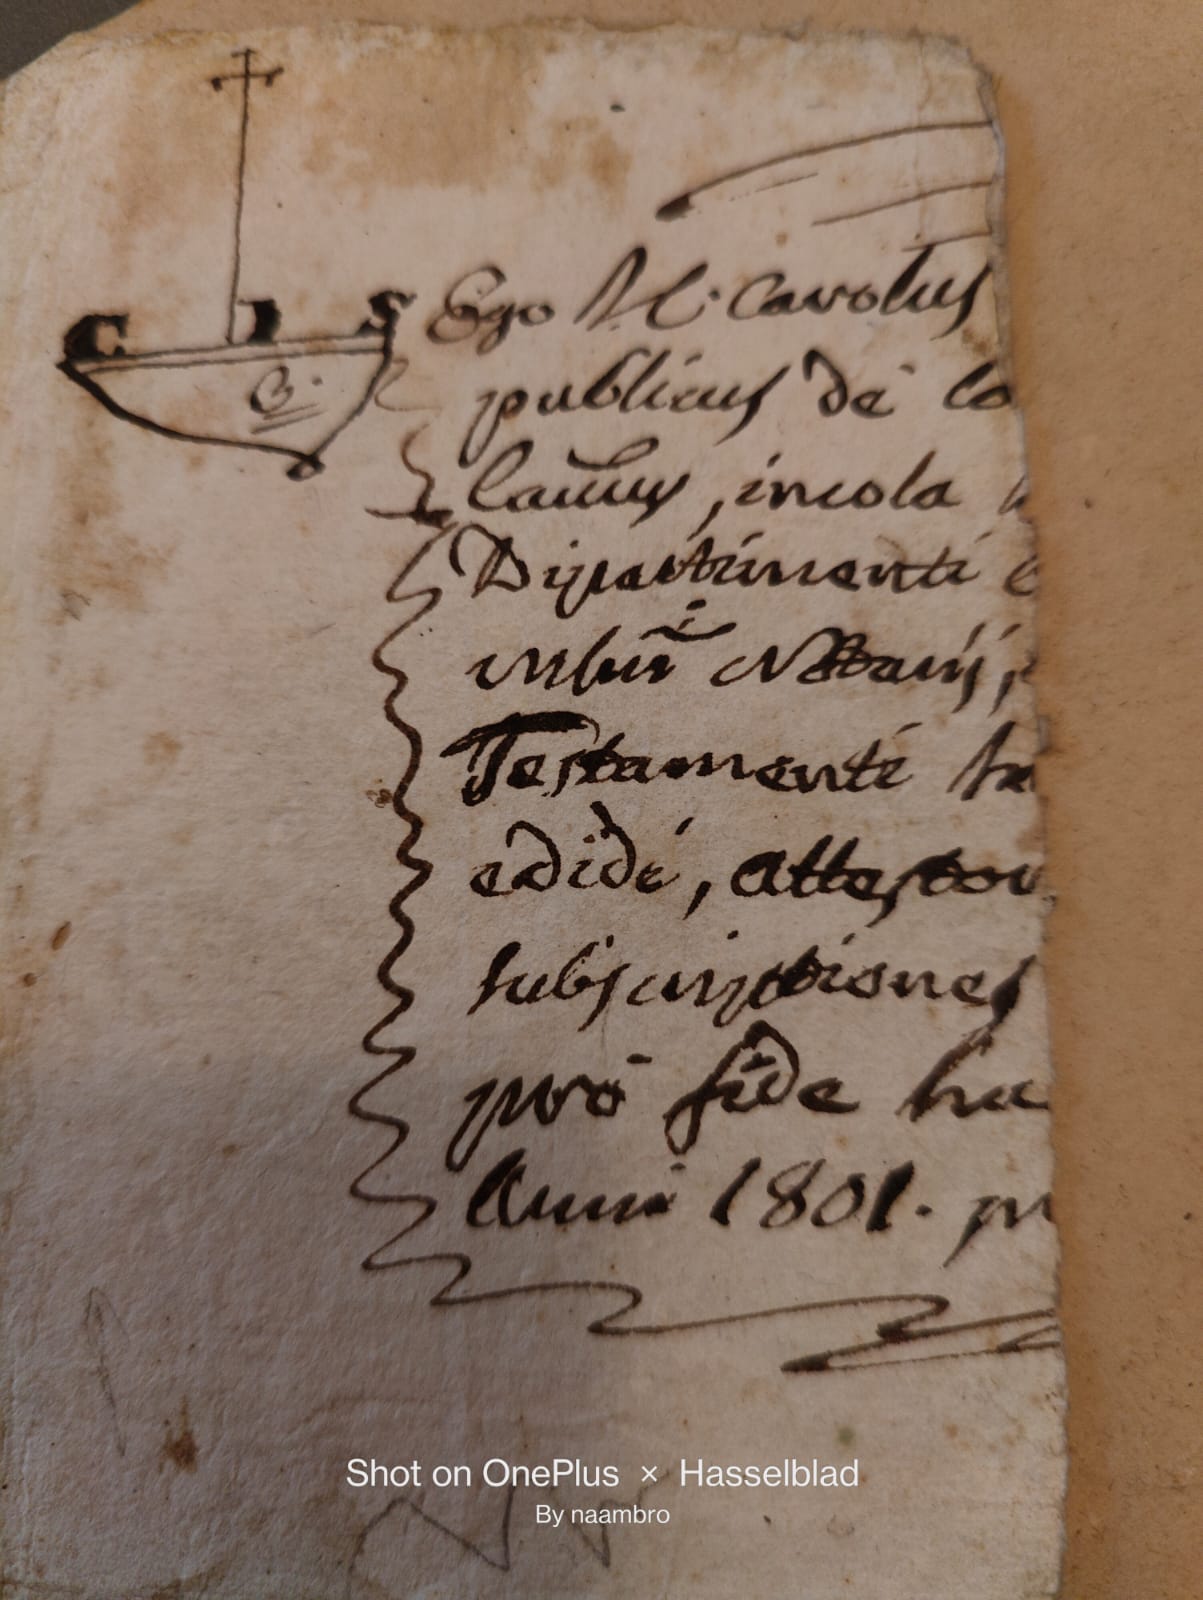 C I S
G.
Ego M. Carolus
publicus de Co
laurus, incola
Dipartimenti
urbis Notarij,
Testamenti
edidi, attestor
subscriptiones
pro fide
Anni 1801.
Shot on OnePlus × Hasselblad
By naambro